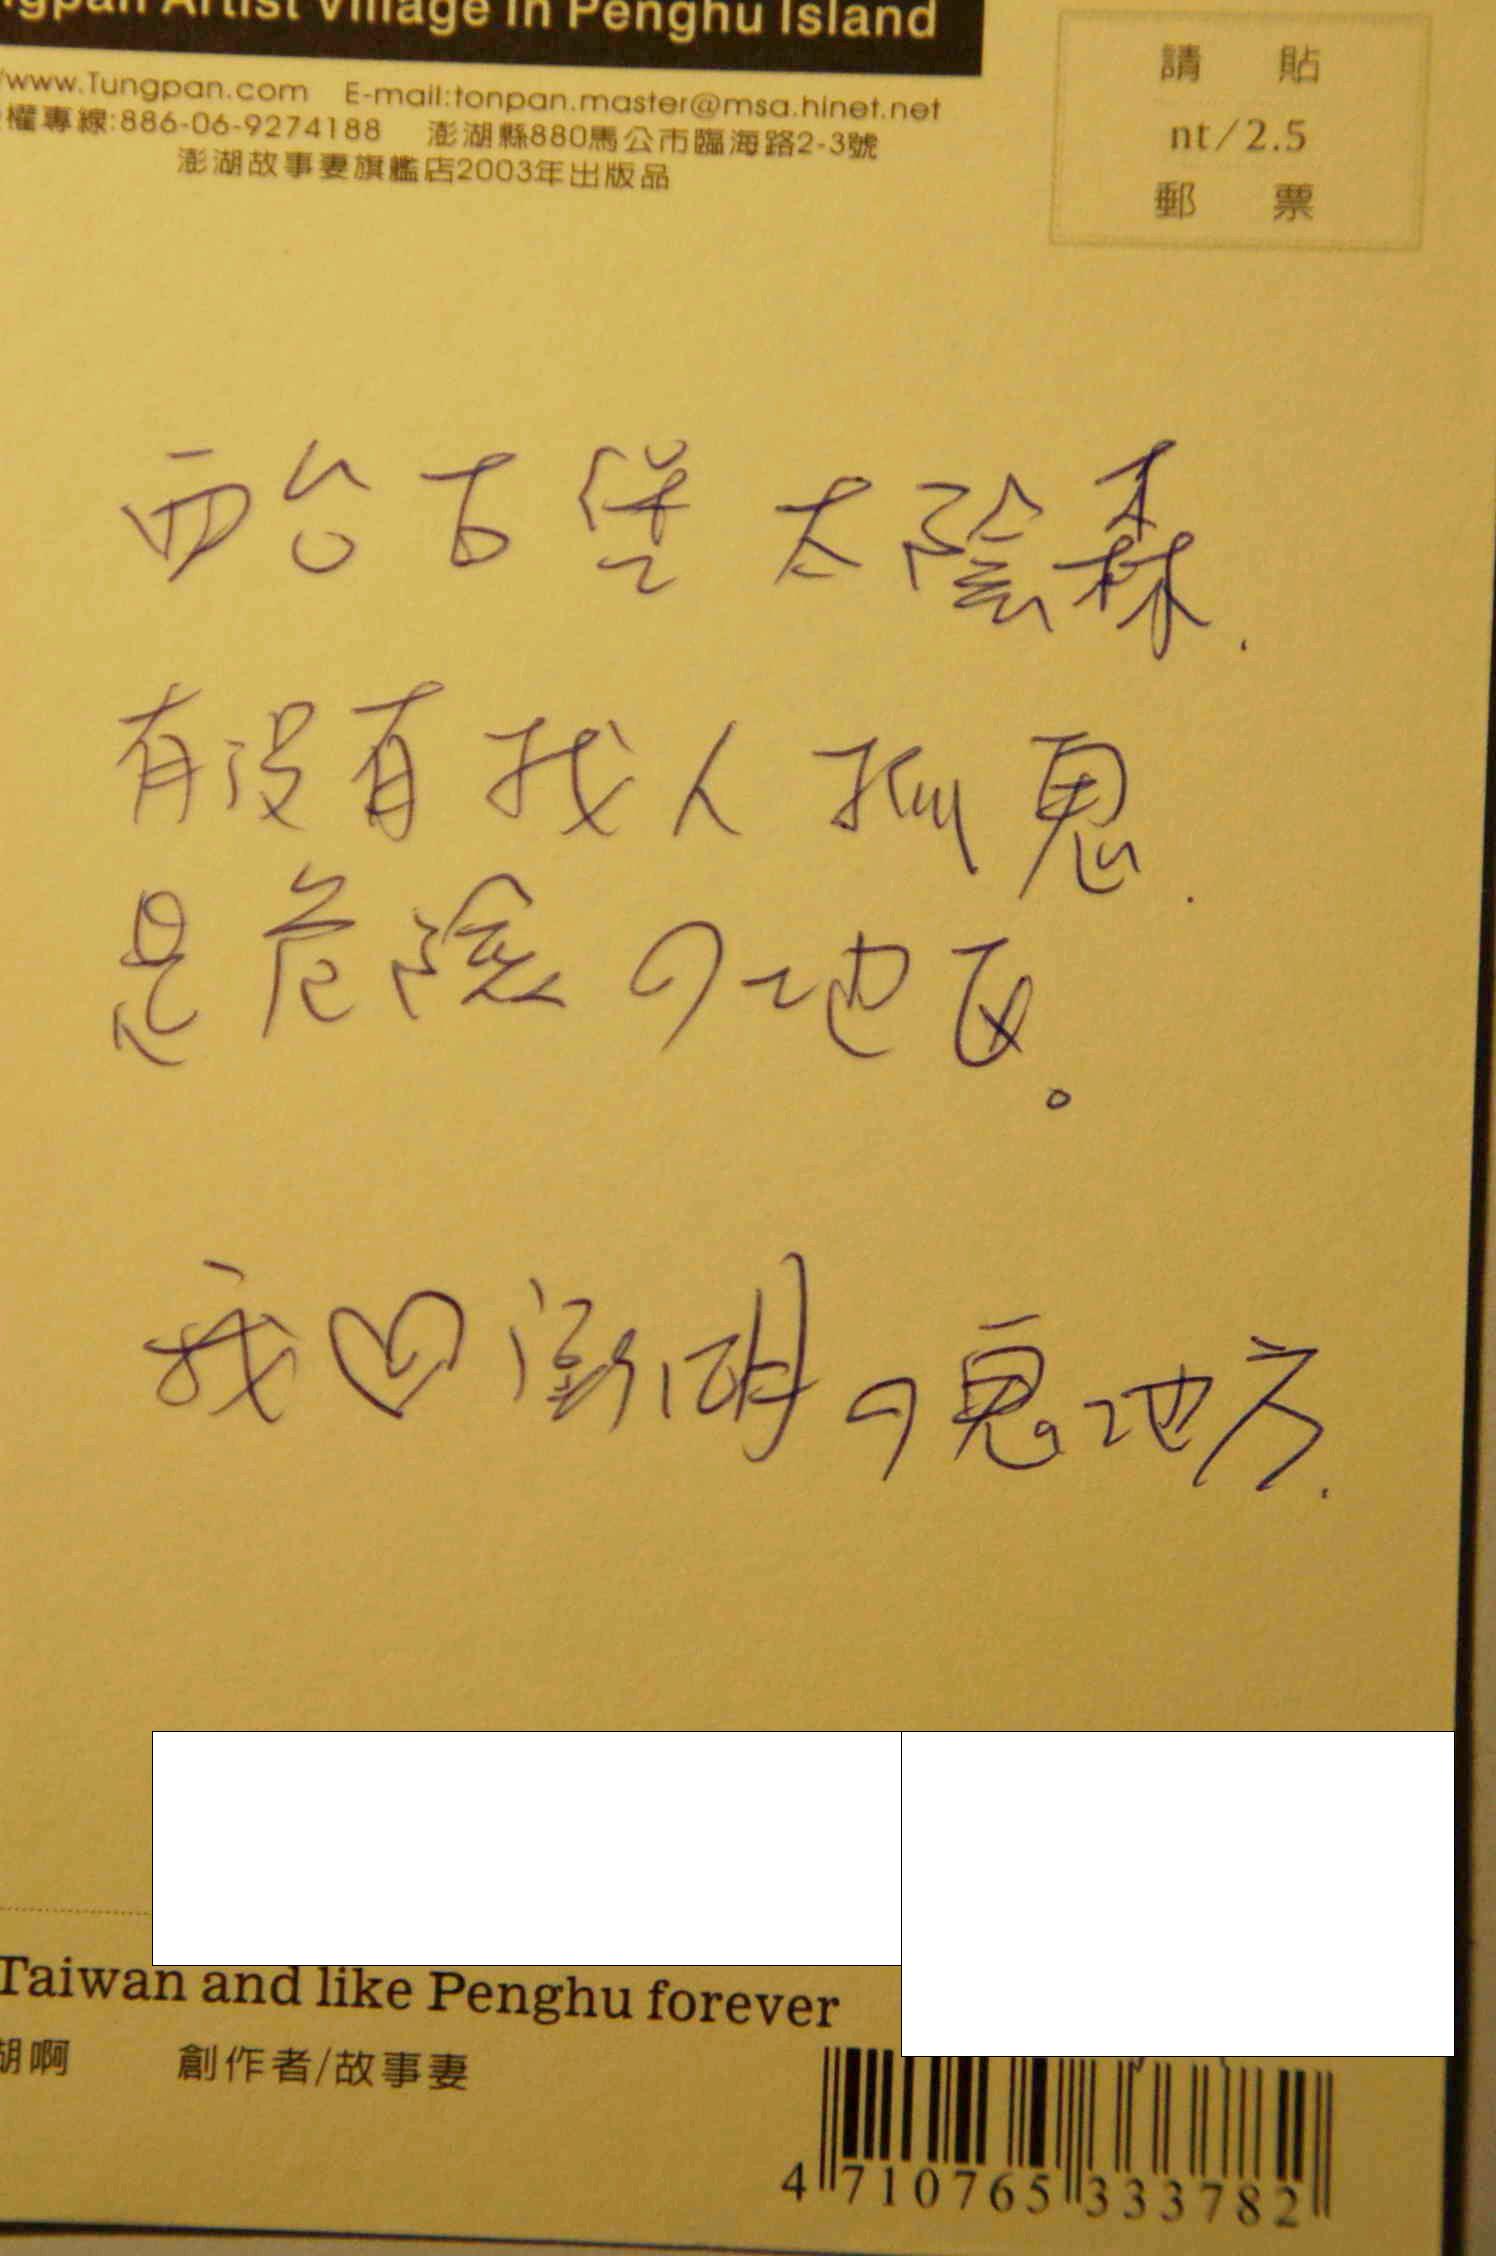 ngpan Artist Village in Penghu Island
/www.Tungpan.com E-mail:tonpan.master@msa.hinet.net
權專線:886-06-9274188 澎湖縣880馬公市臨海路2-3號
澎湖故事妻旗艦店2003年出版品
請 貼
nt/2.5
郵 票
西台古堡太陰森.
有沒有找人抓鬼.
是危險の地区。
我♡澎湖の鬼地方.
Taiwan and like Penghu forever
湖啊 創作者/故事妻
4 710765 333782